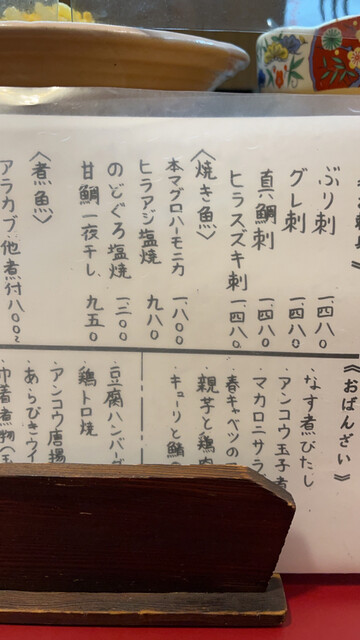 ぶり刺 一、四八〇
グレ刺 一、四八〇
真鯛刺 一、四八〇
ヒラスズキ刺 一、四八〇
〈焼き魚〉
本マグロハーモニカ 一、八〇〇
ヒラアジ塩焼 九八〇
のどぐろ塩焼 一、三〇〇
甘鯛一夜干し 九五〇
〈煮魚〉
アラカブ、他煮付 八〇〇~
《おばんざい》
・なす煮びたし
・アンコウ玉子煮
・マカロニサラ
・春キャベツの
・親芋と鶏肉
・キューリと鯖
・豆腐ハンバーグ
・鶏トロ焼
・アンコウ唐揚
・あらびきウイ
・巾着煮物